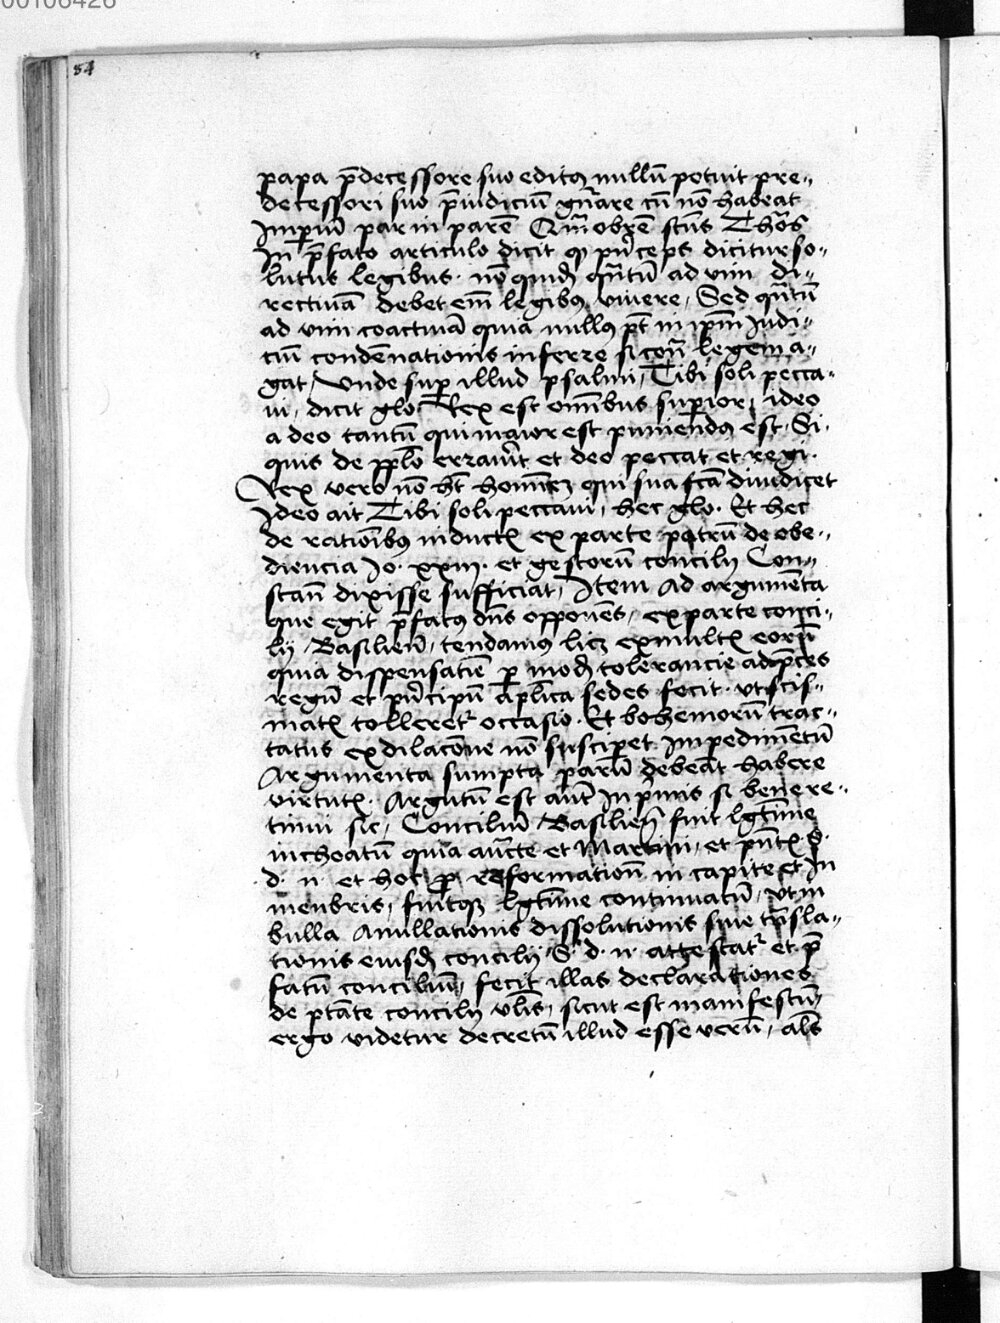 00106426
54
papa p̄decessore suo editꝯ nullū potuit pre„
decessori suo p̄iudiciū gn̄are cū nō habeat
Imꝑiū par in parē Qm̄obrē sctūs Thōs
In p̄fato articulo dicit ꝙ pͥnceps dicitur so„
lutus legibus. nō quidē qn̄tū ad vim di„
rectiuā debet em̄ legibꝯ viuere, Sed qn̄tū
ad vim coactiuā quia nullꝯ pt̄ in ip̄m Judi„
ciū condēnationis inferre si cont̄ legem a„
gat, Vnde suꝑ illud psalmi, Tibi soli pecca„
ui, dicit glo Rex est om̄ibus suꝑior, ideo
a deo tantū qui maior est puniendꝯ est. Si„
quis de pp̄lo errauͥt et deo peccat et regi.
Rex vero nō ht̄ hominē qui sua fc̄a diiudicet
Ideo ait Tibi soli peccaui, hec glo. Et hec
de rationībꝯ inductꝭ ex parte patrū de obe„
diencia Jo. xxiij. et gestorū concilij Con„
stan̄ dixisse sufficiat, Item ad argumēta
que egit p̄fatꝯ dn̄s opponēs, ex parte conci„
lij Basilien̄, tendamꝯ licꝫ ex multꝭ eorū
quia dispensatiē ꝑ modū tolerancie ad p̄ces
regū et pͥncipū ap̄lica sedes fecit. vt scis„
matꝭ tolleretͬ occasio. Et bohemorū trac„
tatus ex dilacōne nō susciꝑet Impedimētū
Argumenta sumpta parū debeāt habere
virtutꝭ. Argutū est aūt In pͥmis si bene re„
timui sic, Conciliū Basilien̄ fuit lgt̄ime
inchoatū quia auc̄te et Martini, et pn̄tꝭ S.
d. n. et hoc ꝓ reformation̄ in capite et In
menbris, fuitqꝫ lgt̄ime continuatū, vt in
bulla Anullationis dissolutionis siue tn̄sla„
tionis eiusdē concilij S. d. n. attestatͬ et p̄
fatū conciliū, fecit illas declarationes
de ptāte concilij vl̄is, sicut est manifestū,
ergo videtur decretū illud esse verū, al̄s